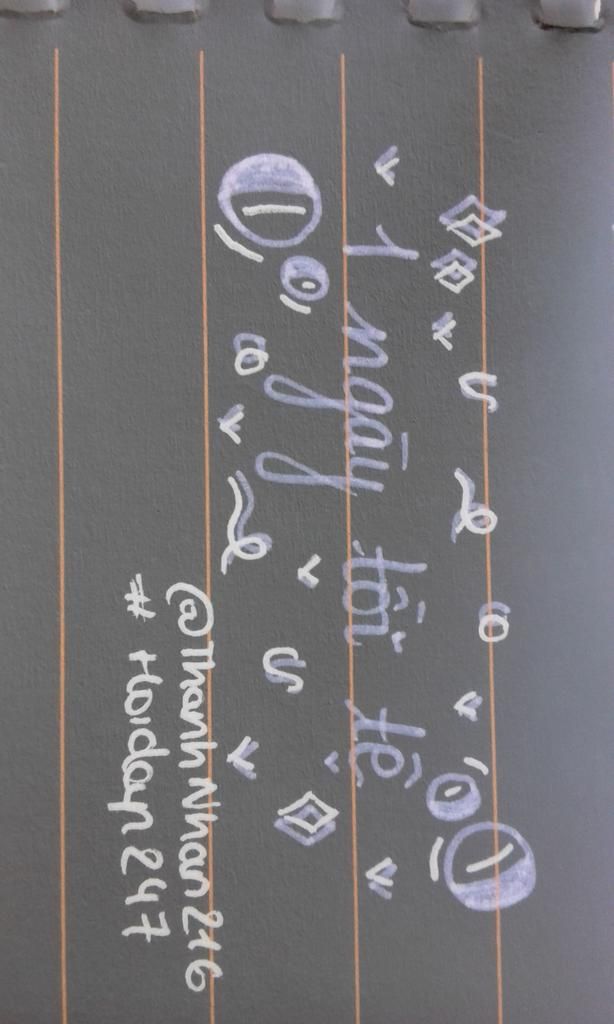 1 ngày tồi tệ
@ThanhNhan216
# Hoidap247